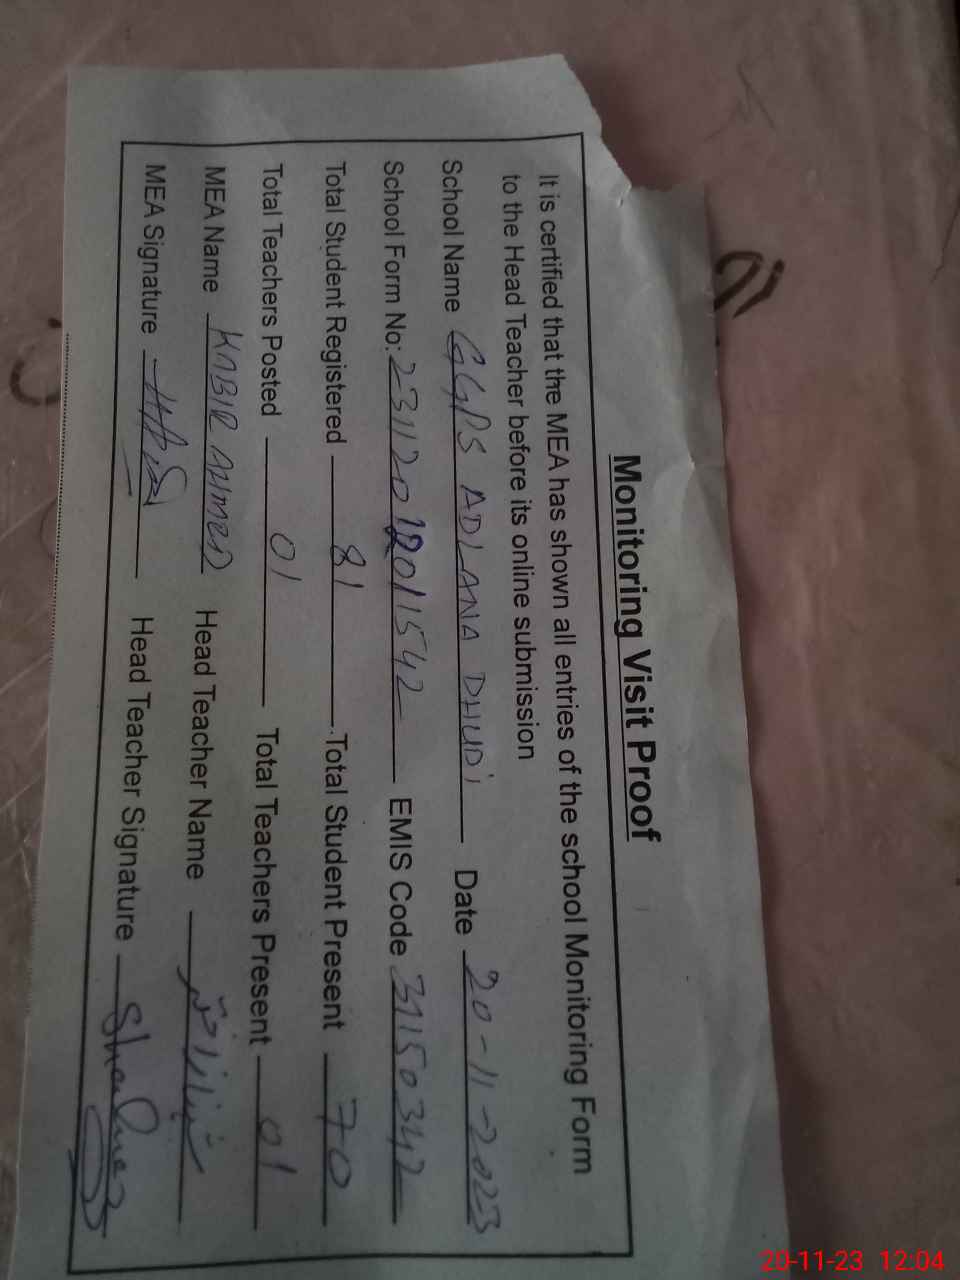 Monitoring Visit Proof
It is certified that the MEA has shown all entries of the school Monitoring Form
to the Head Teacher before its online submission
School Name GGPS ADLANA DHUDI Date 20-11-2023
School Form No: 231120 12011542 EMIS Code 31150342
Total Student Registered 81 Total Student Present 70
Total Teachers Posted 01 Total Teachers Present 01
MEA Name KABIR AHMED Head Teacher Name
MEA Signature Head Teacher Signature
20-11-23 12:04